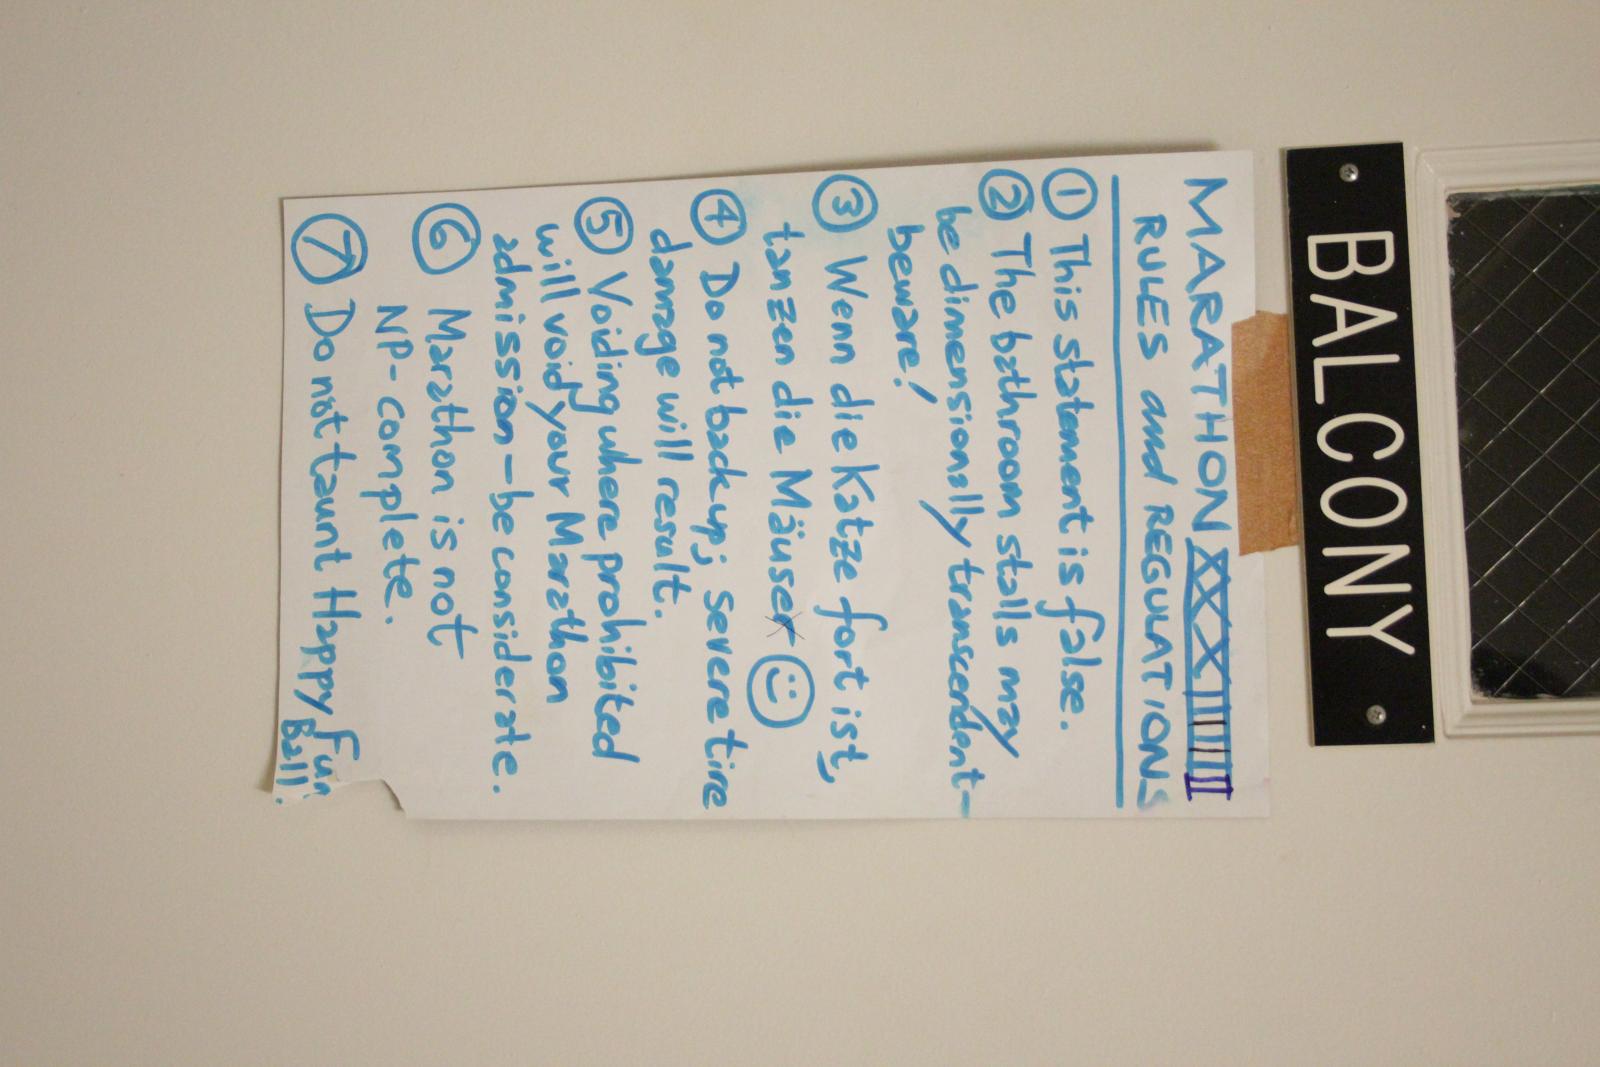 BALCONY
MARATHON XXXIIIII
RULES and REGULATIONS
① This statement is false.
② The bathroom stalls may
be dimensionally transcendent—
beware!
③ Wenn die Katze fort ist,
tanzen die Mäuser ☺
④ Do not back up; severe tire
damage will result.
⑤ Voiding where prohibited
will void your Marathon
admission – be considerate.
⑥ Marathon is not
NP-complete.
⑦ Do not taunt Happy Fun
Ball.